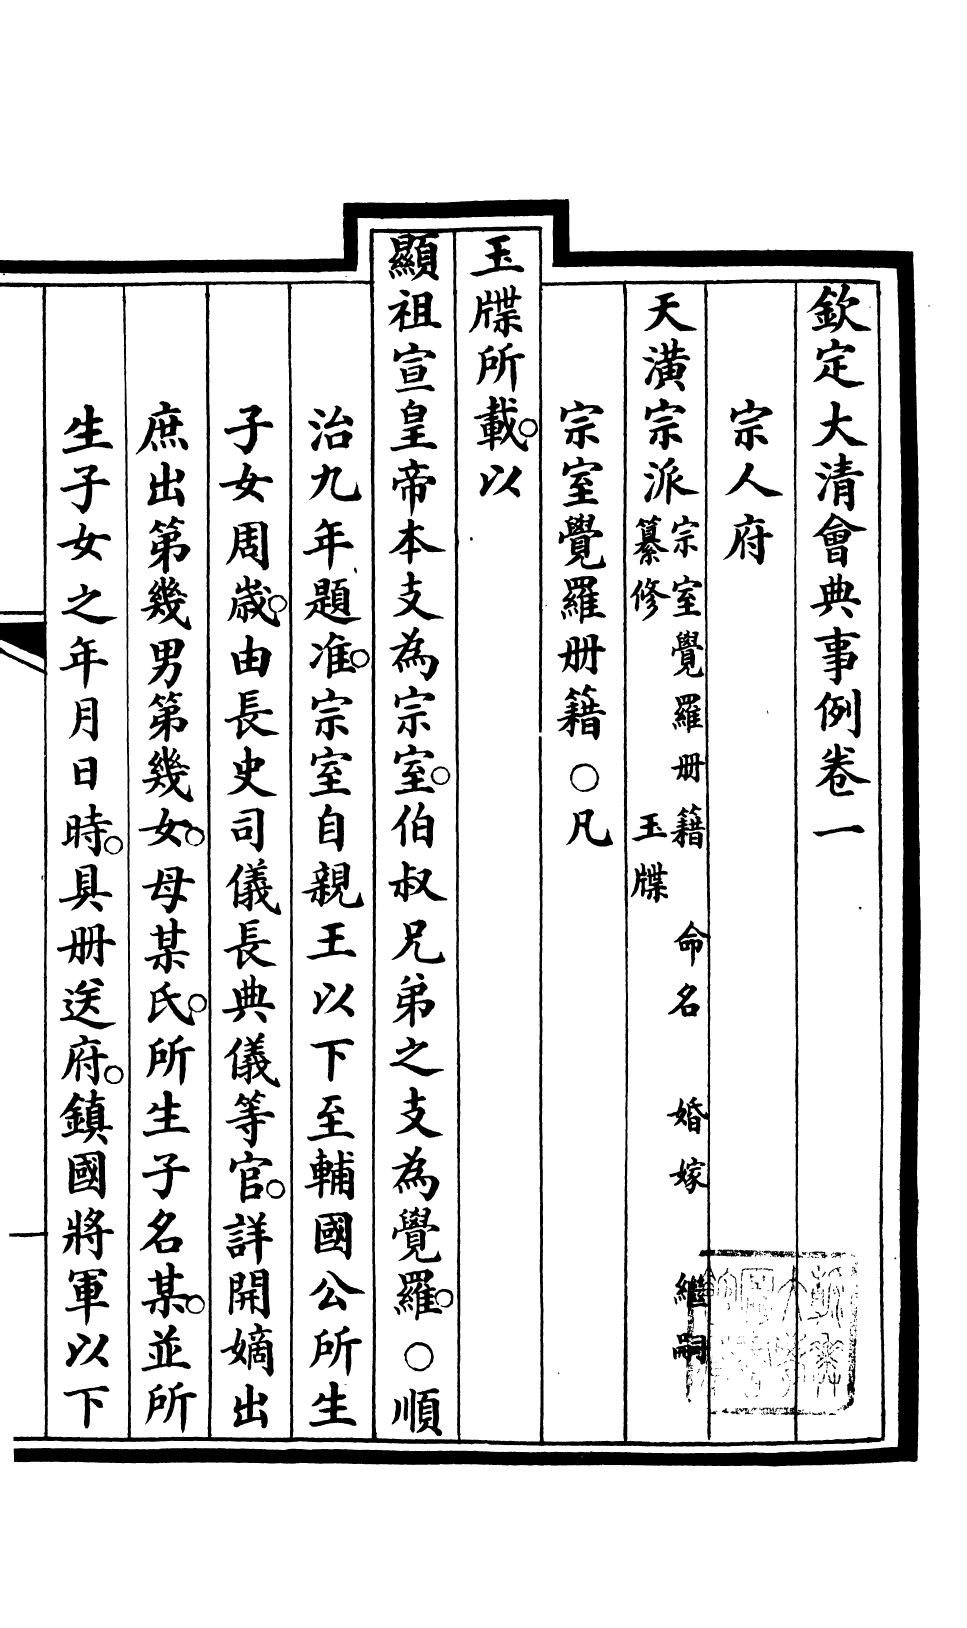 欽定大清會典事例卷一
宗人府
天潢宗派 宗室覺羅冊籍 命名 婚嫁 繼嗣
纂修 玉牒
宗室覺羅冊籍○凡
玉牒所載。以
顯祖宣皇帝本支為宗室。伯叔兄弟之支為覺羅。○順
治九年題准。宗室自親王以下至輔國公所生
子女周歲。由長史司儀長典儀等官。詳開嫡出
庶出第幾男第幾女。母某氏。所生子名某。並所
生子女之年月日時。具冊送府。鎮國將軍以下